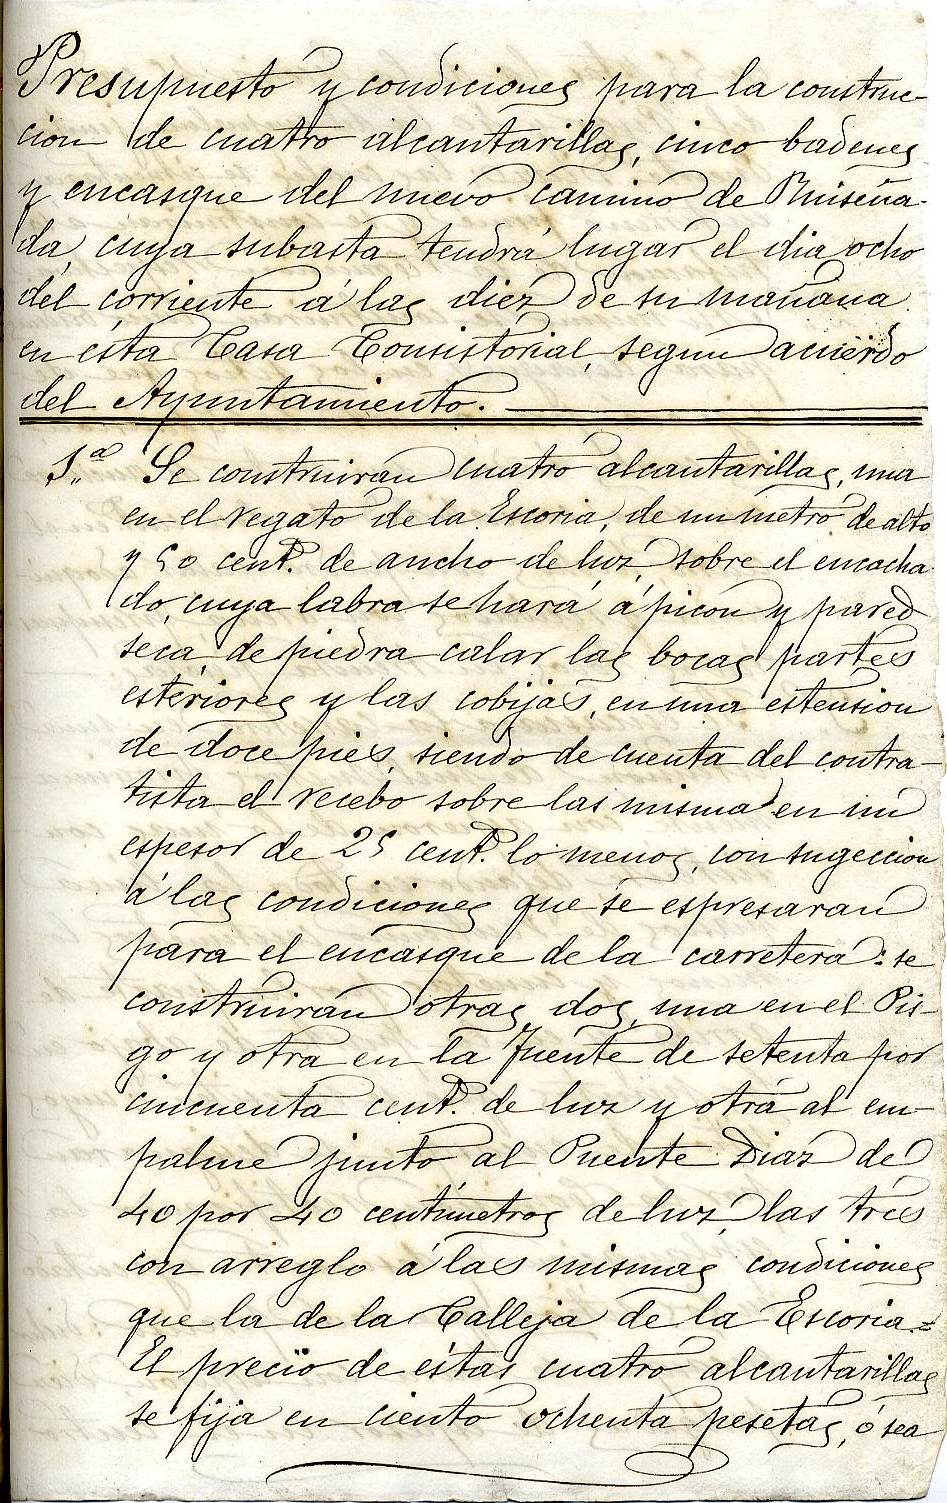 Presupuesto y condiciones para la construc-
cion de cuatro alcantarillas, cinco badenes
y encasque del nuevo camino de Ruiseña-
da, cuya subasta tendrá lugar el dia ocho
del corriente á las diez de su mañana
en ésta Casa Consistorial, segun acuerdo
del Ayuntamiento.
1.ª Se construiran cuatro alcantarillas, una
en el regato de la Escoria, de un metro de alto
y 50 cent.s de ancho de luz, sobre el encacha-
do, cuya labra se hará á picon y pared
seca, de piedra calar las bocas partes
esteriores y las cobijas, en una estension
de doce pies, siendo de cuenta del contra-
tista el recebo sobre las misma en un
espesor de 25 cent.s lo menos, con sugeccion
á las condiciones que se espresaran
para el encasque de la carretera: se
construiran otras dos, una en el Pis-
go y otra en la Fuente de setenta por
cincuenta cent.s de luz y otra al em-
palme junto al Puente Diaz de
40 por 40 centimetros de luz, las tres
con arreglo á las mismas condiciones
que la de la Calleja de la Escoria.=
El precio de éstas cuatro alcantarillas
se fija en ciento ochenta pesetas, ó sea